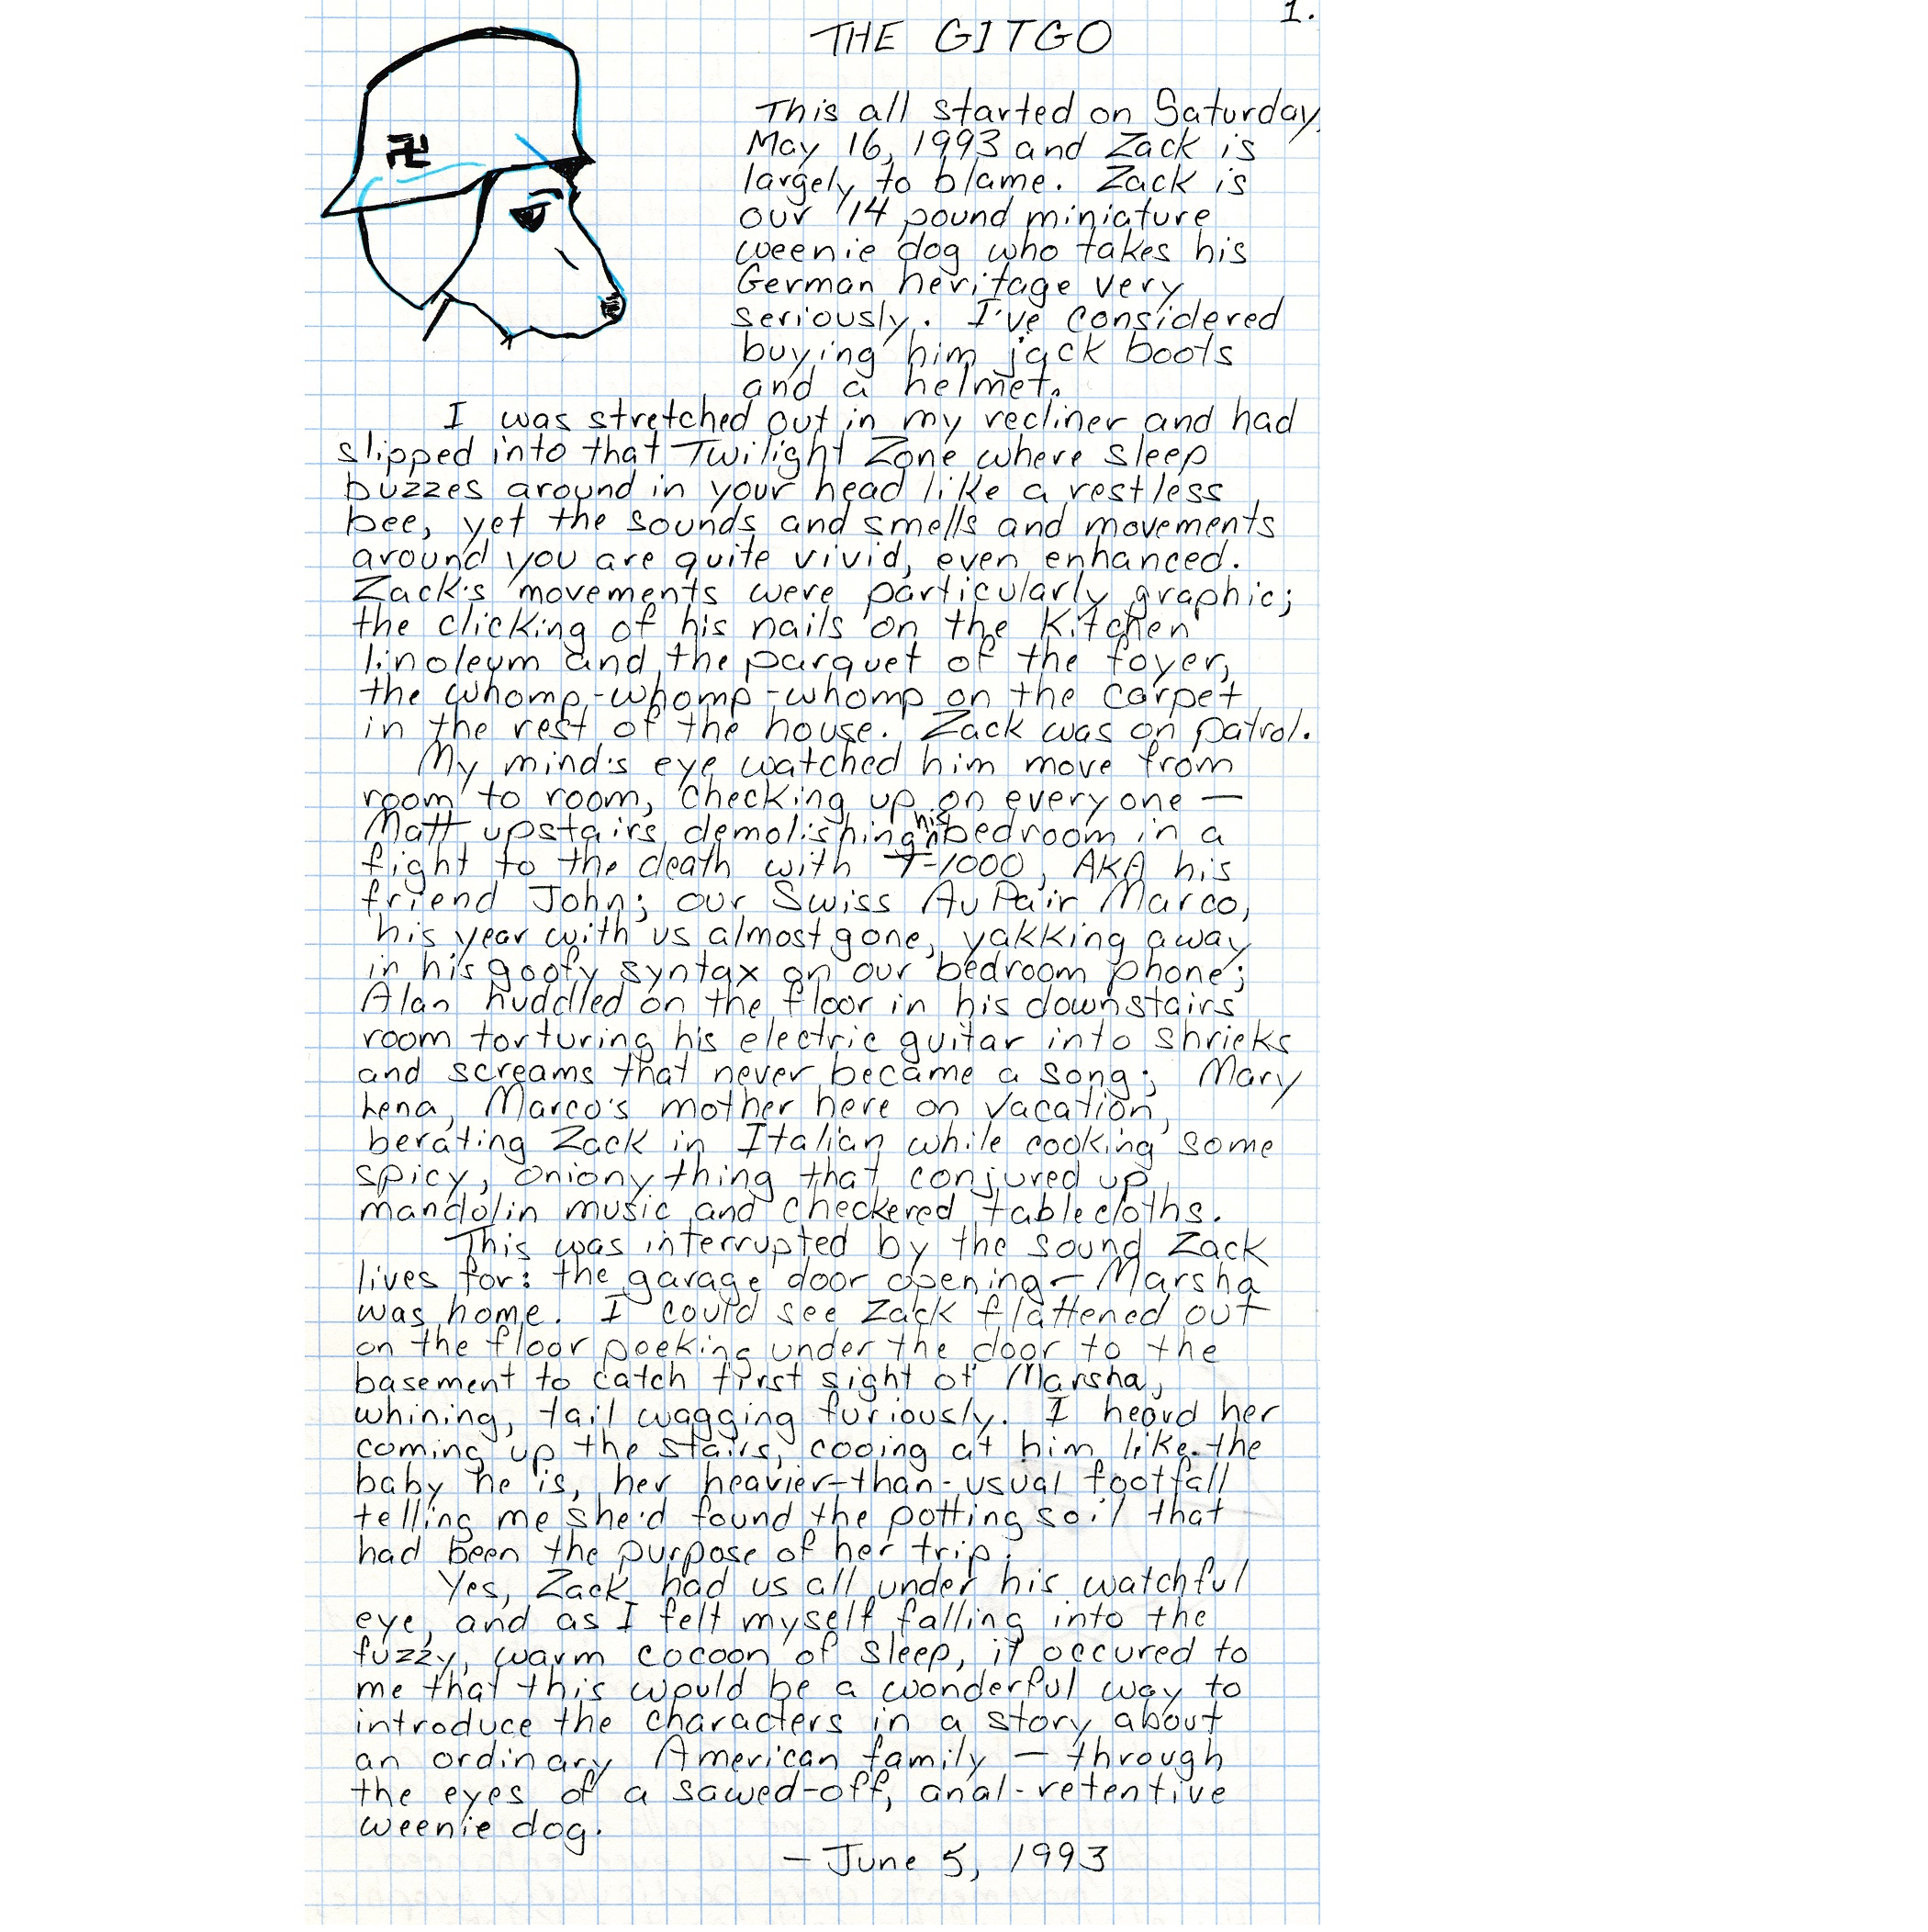 1.
THE GITGO
This all started on Saturday,
May 16, 1993 and Zack is
largely to blame. Zack is
our 14 pound miniature
weenie dog who takes his
German heritage very
seriously. I've considered
buying him jack boots
and a helmet.
I was stretched out in my recliner and had
slipped into that Twilight Zone where sleep
buzzes around in your head like a restless
bee, yet the sounds and smells and movements
around you are quite vivid, even enhanced.
Zack's movements were particularly graphic;
the clicking of his nails on the kitchen
linoleum and the parquet of the foyer,
the whomp-whomp-whomp on the carpet
in the rest of the house. Zack was on patrol.
My mind's eye watched him move from
room to room, checking up on everyone —
Matt upstairs demolishing his bedroom in a
fight to the death with T-1000, AKA his
friend John; our Swiss Au Pair Marco,
his year with us almost gone, yakking away
in his goofy syntax on our bedroom phone;
Alan huddled on the floor in his downstairs
room torturing his electric guitar into shrieks
and screams that never became a song; Mary
Lena, Marco's mother here on vacation,
berating Zack in Italian while cooking some
spicy, oniony thing that conjured up
mandolin music and checkered tablecloths.
This was interrupted by the sound Zack
lives for: the garage door opening — Marsha
was home. I could see Zack flattened out
on the floor peeking under the door to the
basement to catch first sight of Marsha,
whining, tail wagging furiously. I heard her
coming up the stairs, cooing at him like the
baby he is, her heavier-than-usual footfall
telling me she'd found the potting soil that
had been the purpose of her trip.
Yes, Zack had us all under his watchful
eye, and as I felt myself falling into the
fuzzy, warm cocoon of sleep, it occured to
me that this would be a wonderful way to
introduce the characters in a story about
an ordinary American family — through
the eyes of a sawed-off, anal-retentive
weenie dog.
— June 5, 1993